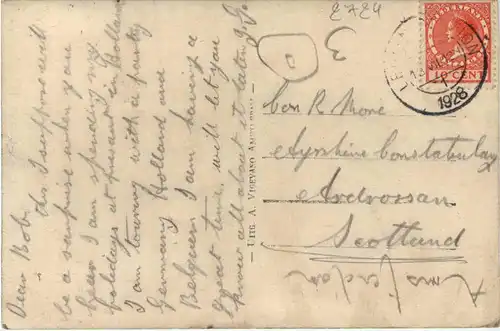 2724
3
Dear Bob,
this I suppose will
be a surprise when you
hear I am spending my
holidays at present in Holland
I am touring with a party
Germany Holland and
Belgium I am having a
great time, will let you
know all about it later
— UITG. A. VIGEVANO AMSTERDAM —
10 CENT
1928
Con R More
Ayrshire Constabulary
Ardrossan
Scotland
Amsterdam